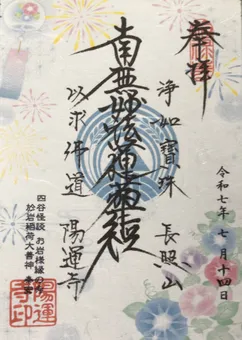 奉拝
浄如寶珠 長照山
南無妙法蓮華経
以求佛道 陽運寺
令和七年 七月十四日
四谷怪談 お岩様縁の寺
於岩稲荷大善神 奉安
陽運寺印